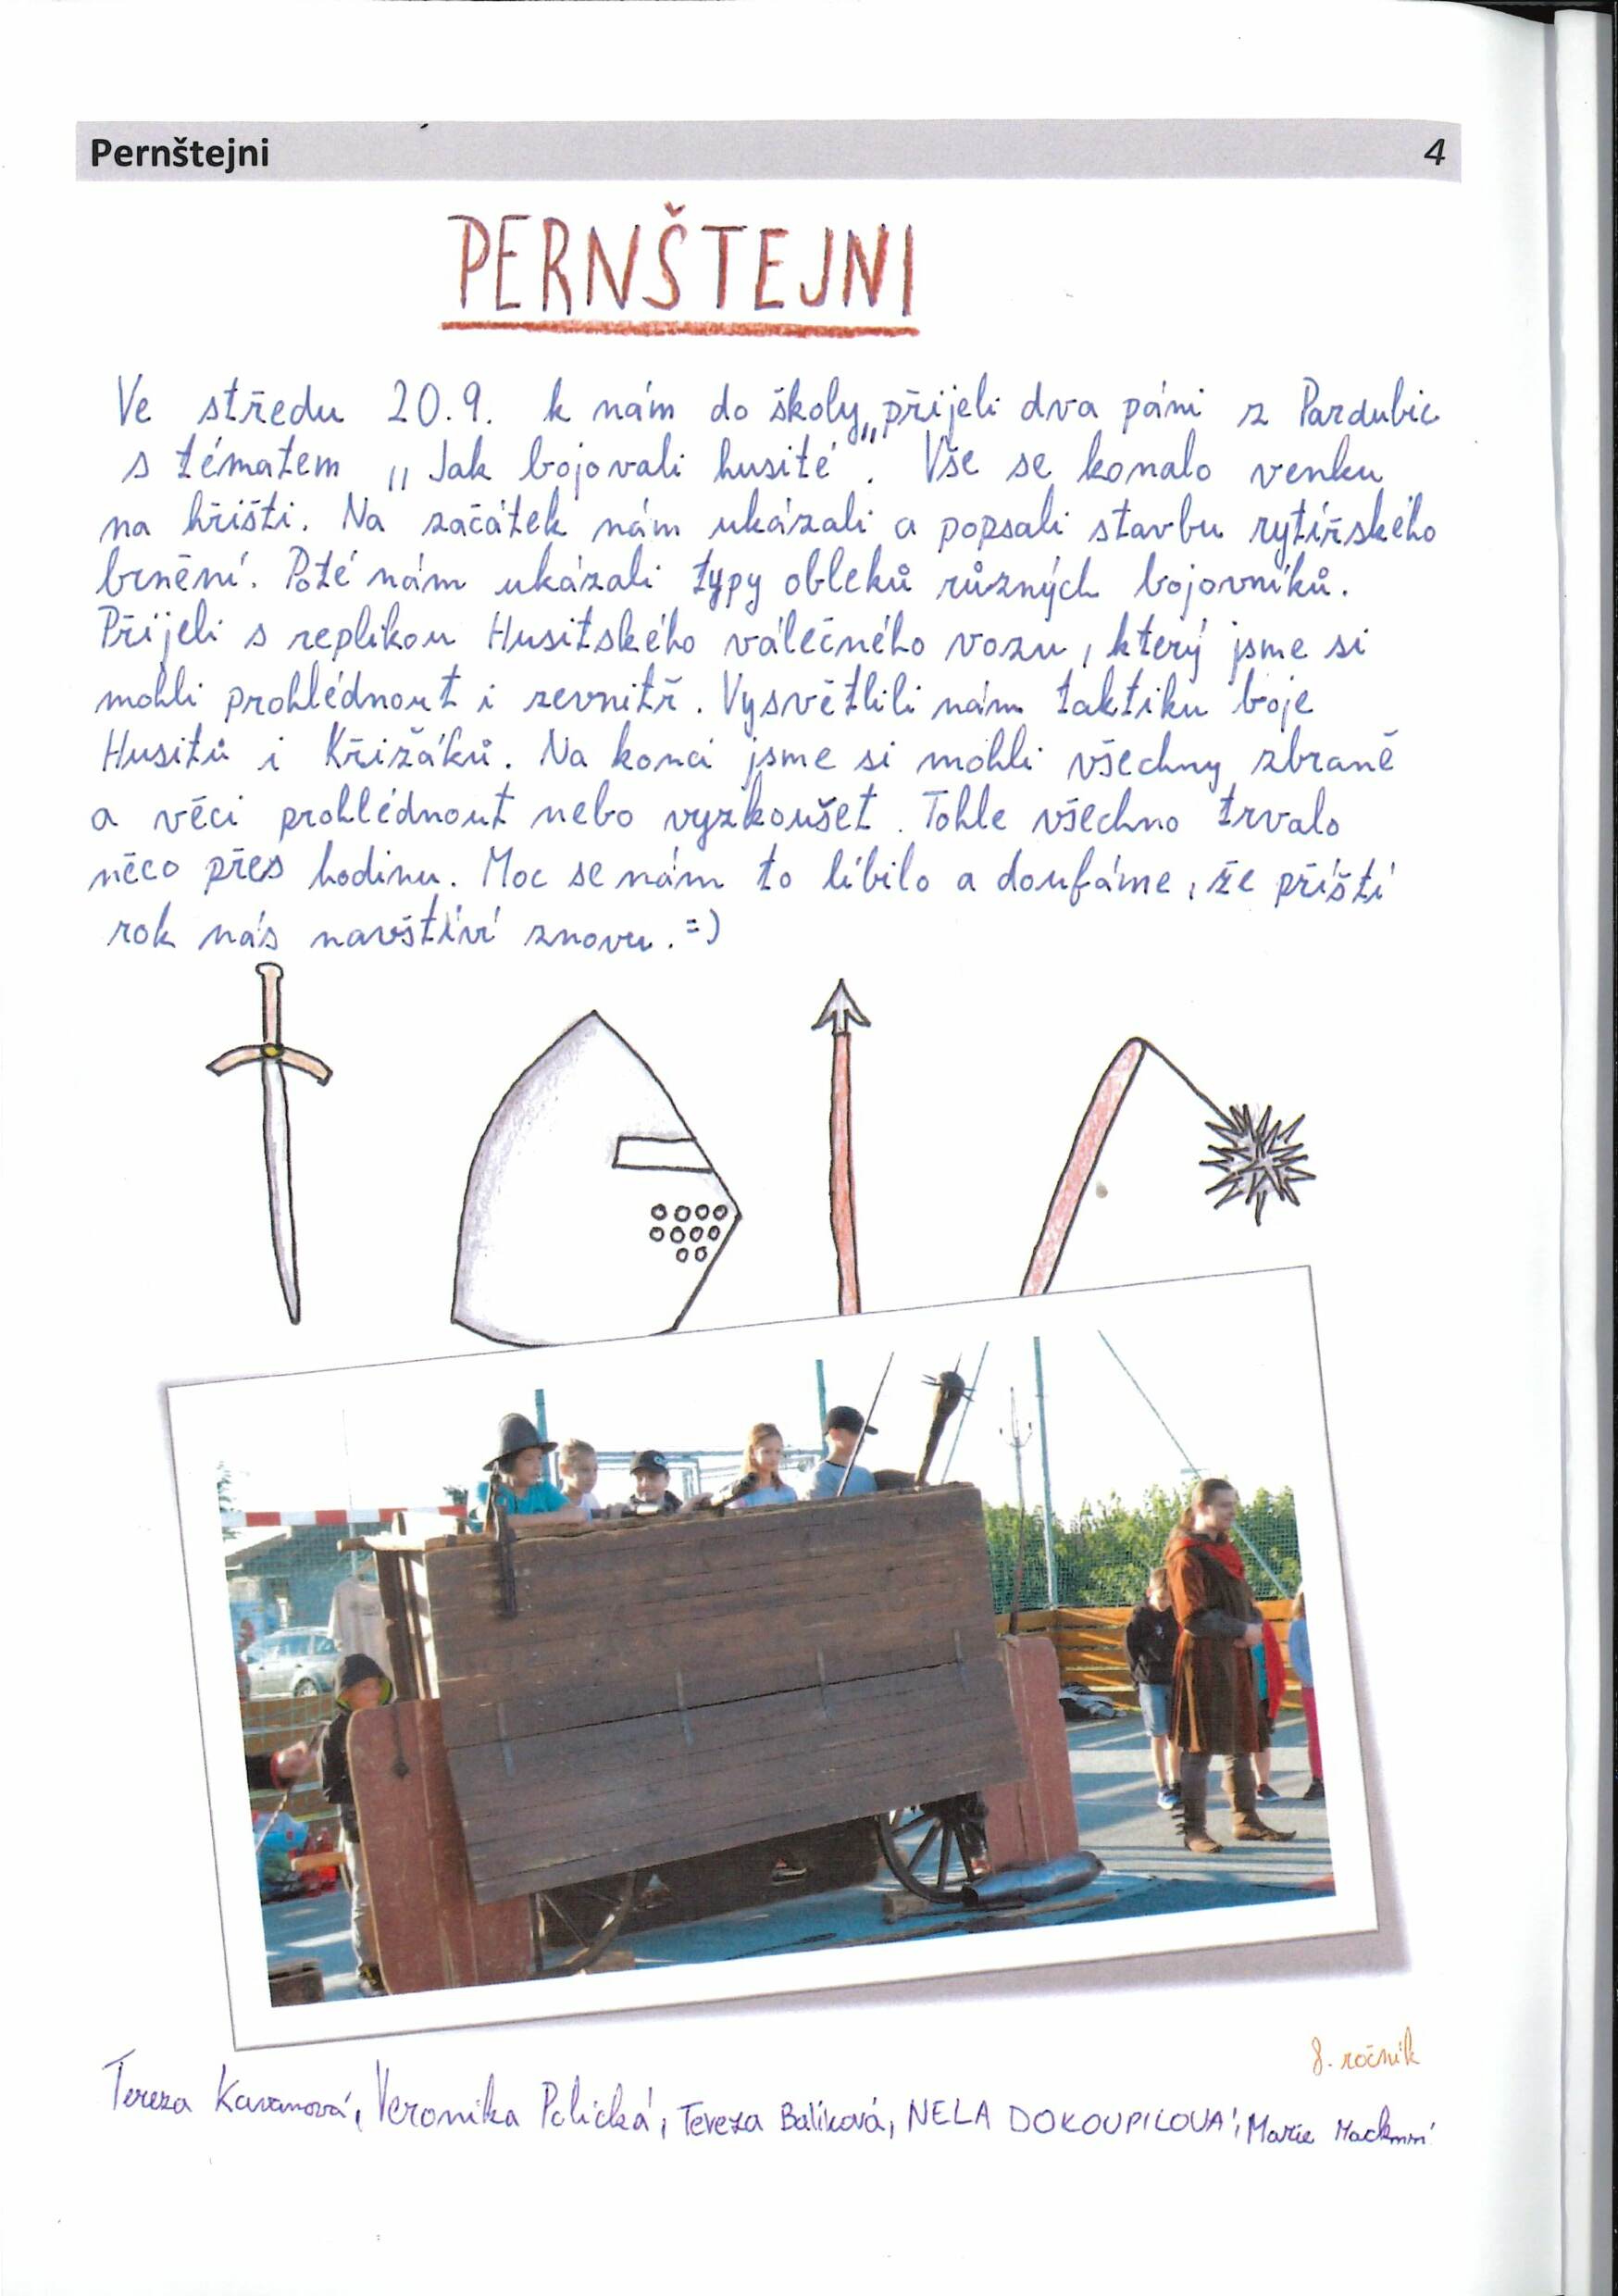 Pernštejni 4
PERNŠTEJNI
Ve středu 20.9. k nám do školy přijeli dva páni z Pardubic
s tématem „Jak bojovali husité". Vše se konalo venku
na hřišti. Na začátek nám ukázali a popsali stavbu rytířského
brnění. Poté nám ukázali typy obleků různých bojovníků.
Přijeli s replikou Husitského válečného vozu, který jsme si
mohli prohlédnout i zevnitř. Vysvětlili nám taktiku boje
Husitů i Křižáků. Na konci jsme si mohli všechny zbraně
a věci prohlédnout nebo vyzkoušet. Tohle všechno trvalo
něco přes hodinu. Moc se nám to líbilo a doufáme, že příští
rok nás navštíví znovu. =)
8. ročník
Tereza Kavanová, Veronika Polická, Tereza Balíková, NELA DOKOUPILOVÁ, Marie